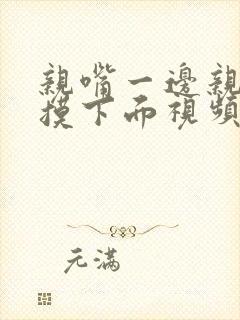 親嘴一邊親
摸下面視頻
元滿